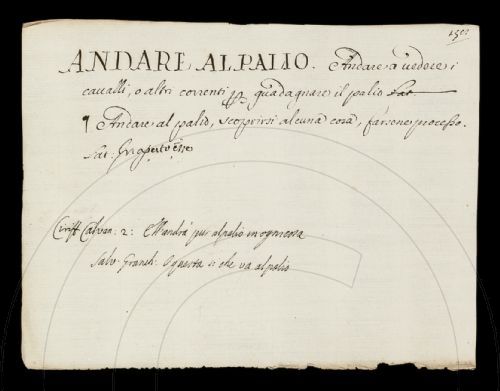 ANDARE AL PALIO. Andare a uedere i
caualli, o altri correnti guadagnare il palio
¶ Andare al palio, scoprirsi alcuna cosa, farsene processo.
Sat.
Ciriff. Calvan: 2: E Mandrà pur al palio in ogni cosa
Salv. Granch. Questa si che va al palio